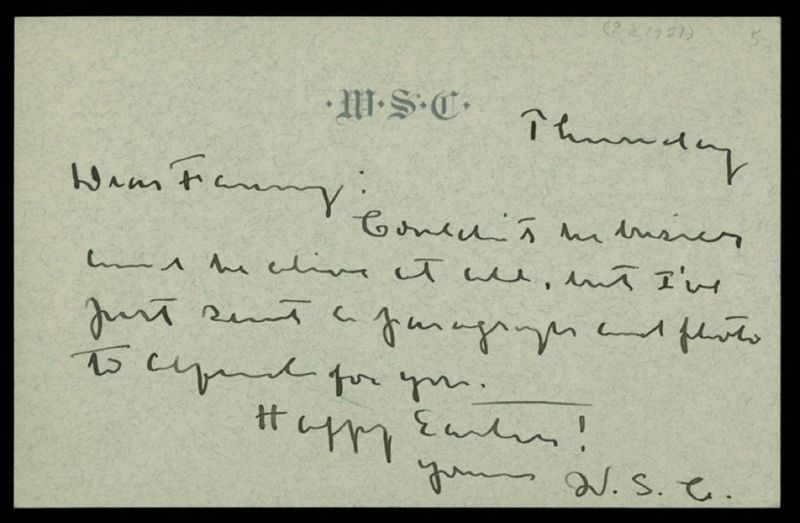 (? c 1921)
·W·S·C·
Thursday
Dear Fanny:
Couldn't be busier
and be alive at all, but I've
just sent a paragraph and photo
to for you.
Happy Easter!
yours W. S. C.